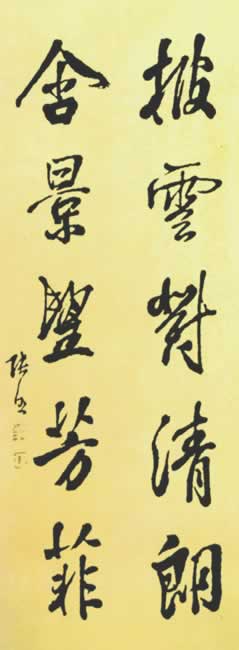 披雲對清朗
含景芳菲